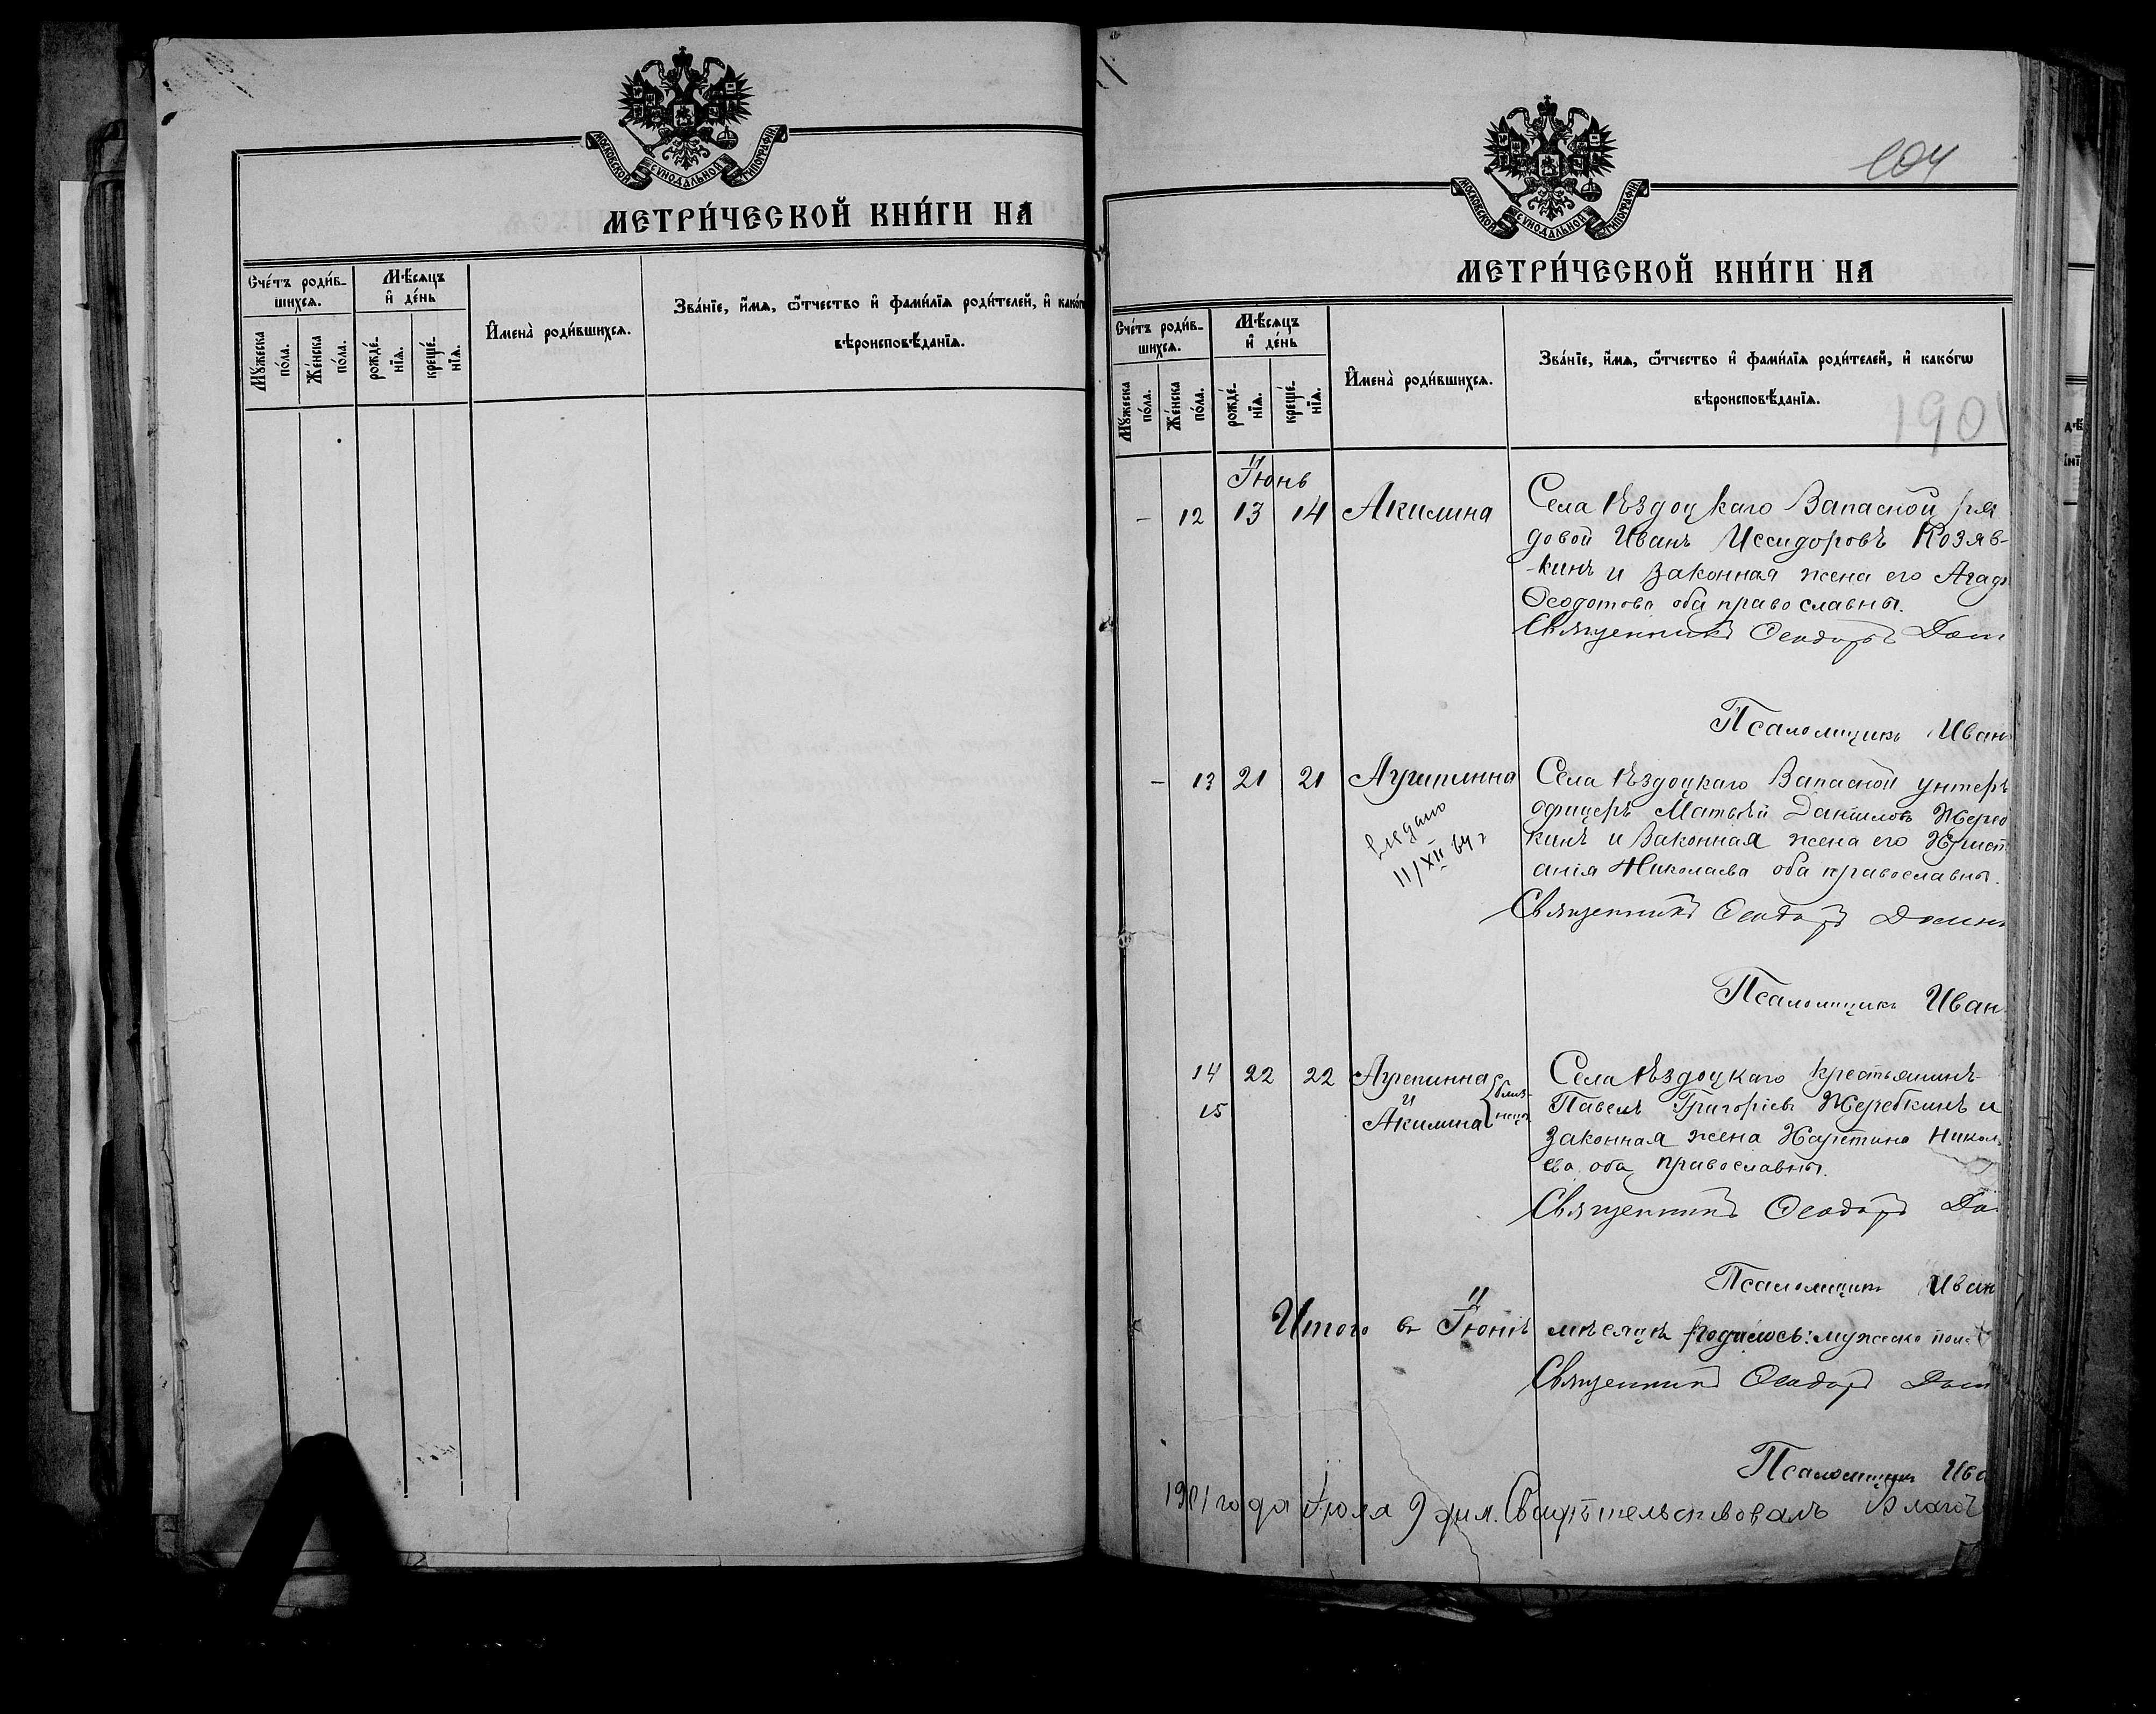 МОСКОВСКОЙ СѴНОДАЛЬНОЙ ТИПОГРАФІИ
МЕТРИ́ЧЕСКОЙ КНИ́ГИ НА
Сче́тъ роди́в-
шихсѧ.
Мꙋ́жеска
по́ла.
Же́нска
по́ла.
Мѣ́сѧцъ
и҆ де́нь
рожде́-
нїѧ.
креще́-
нїѧ.
И҆мена̀ роди́вшихсѧ.
Зва́нїе, и҆́мѧ, ѻ҆́тчество и҆ фами́лїѧ роди́телей, и҆ како́гѡ
вѣроисповѣ́данїѧ.
104
МОСКОВСКОЙ СѴНОДАЛЬНОЙ ТИПОГРАФІИ
МЕТРИ́ЧЕСКОЙ КНИ́ГИ НА
Сче́тъ роди́в-
шихсѧ.
Мꙋ́жеска
по́ла.
Же́нска
по́ла.
Мѣ́сѧцъ
и҆ де́нь
рожде́-
нїѧ.
креще́-
нїѧ.
И҆мена̀ роди́вшихсѧ.
Зва́нїе, и҆́мѧ, ѻ҆́тчество и҆ фами́лїѧ роди́телей, и҆ како́гѡ
вѣроисповѣ́данїѧ.
1901
Іюнь
– 12 13 14 Акилина Села Ѣздоцкаго Запасной ря
довой Иванъ Иссидоровъ Козяв-
-кинъ и законная жена его Агаф
Ѳеодотова оба православны.
Священникъ Ѳеодоръ
Псаломщикъ Иван
– 13 21 21 Агриппина Села Ѣздоцкаго Запасной унтеръ
офицеръ Матвѣй Даніиловъ Жереб
кинъ и Законная жена его Христ
анія Николаева оба православны.
Выдано
11/XII 64 г
Священникъ Ѳеодоръ
Псаломщикъ Иван
14 22 22 Агрепинна Села Ѣздоцкаго крестьянинъ
15 и Акилина близ-
нецы Павелъ Григоріевъ Жеребкинъ и
законная жена Харитина Никол
ева оба православны.
Священникъ Ѳеодоръ
Псаломщикъ Иван
Итого въ Іюнѣ мѣсяцѣ родилось: мужеско пола
Священникъ Ѳеодоръ
Псаломщикъ Ива
1901 года Іюля 9 дня. Свидѣтельствовалъ Благоч